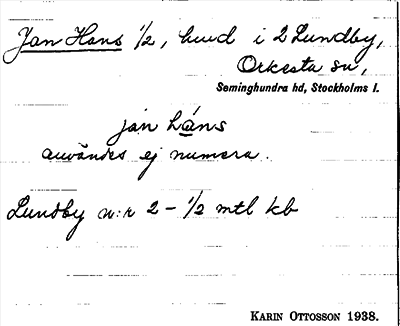 Jan Hans 1/2, huud i 2 Lundby,
Orkesta sn,
Seminghundra hd, Stockholms l.
ján háns
användes ej numera.
Lundby n:r 2 – 1/2 mtl kb
KARIN OTTOSSON 1938.